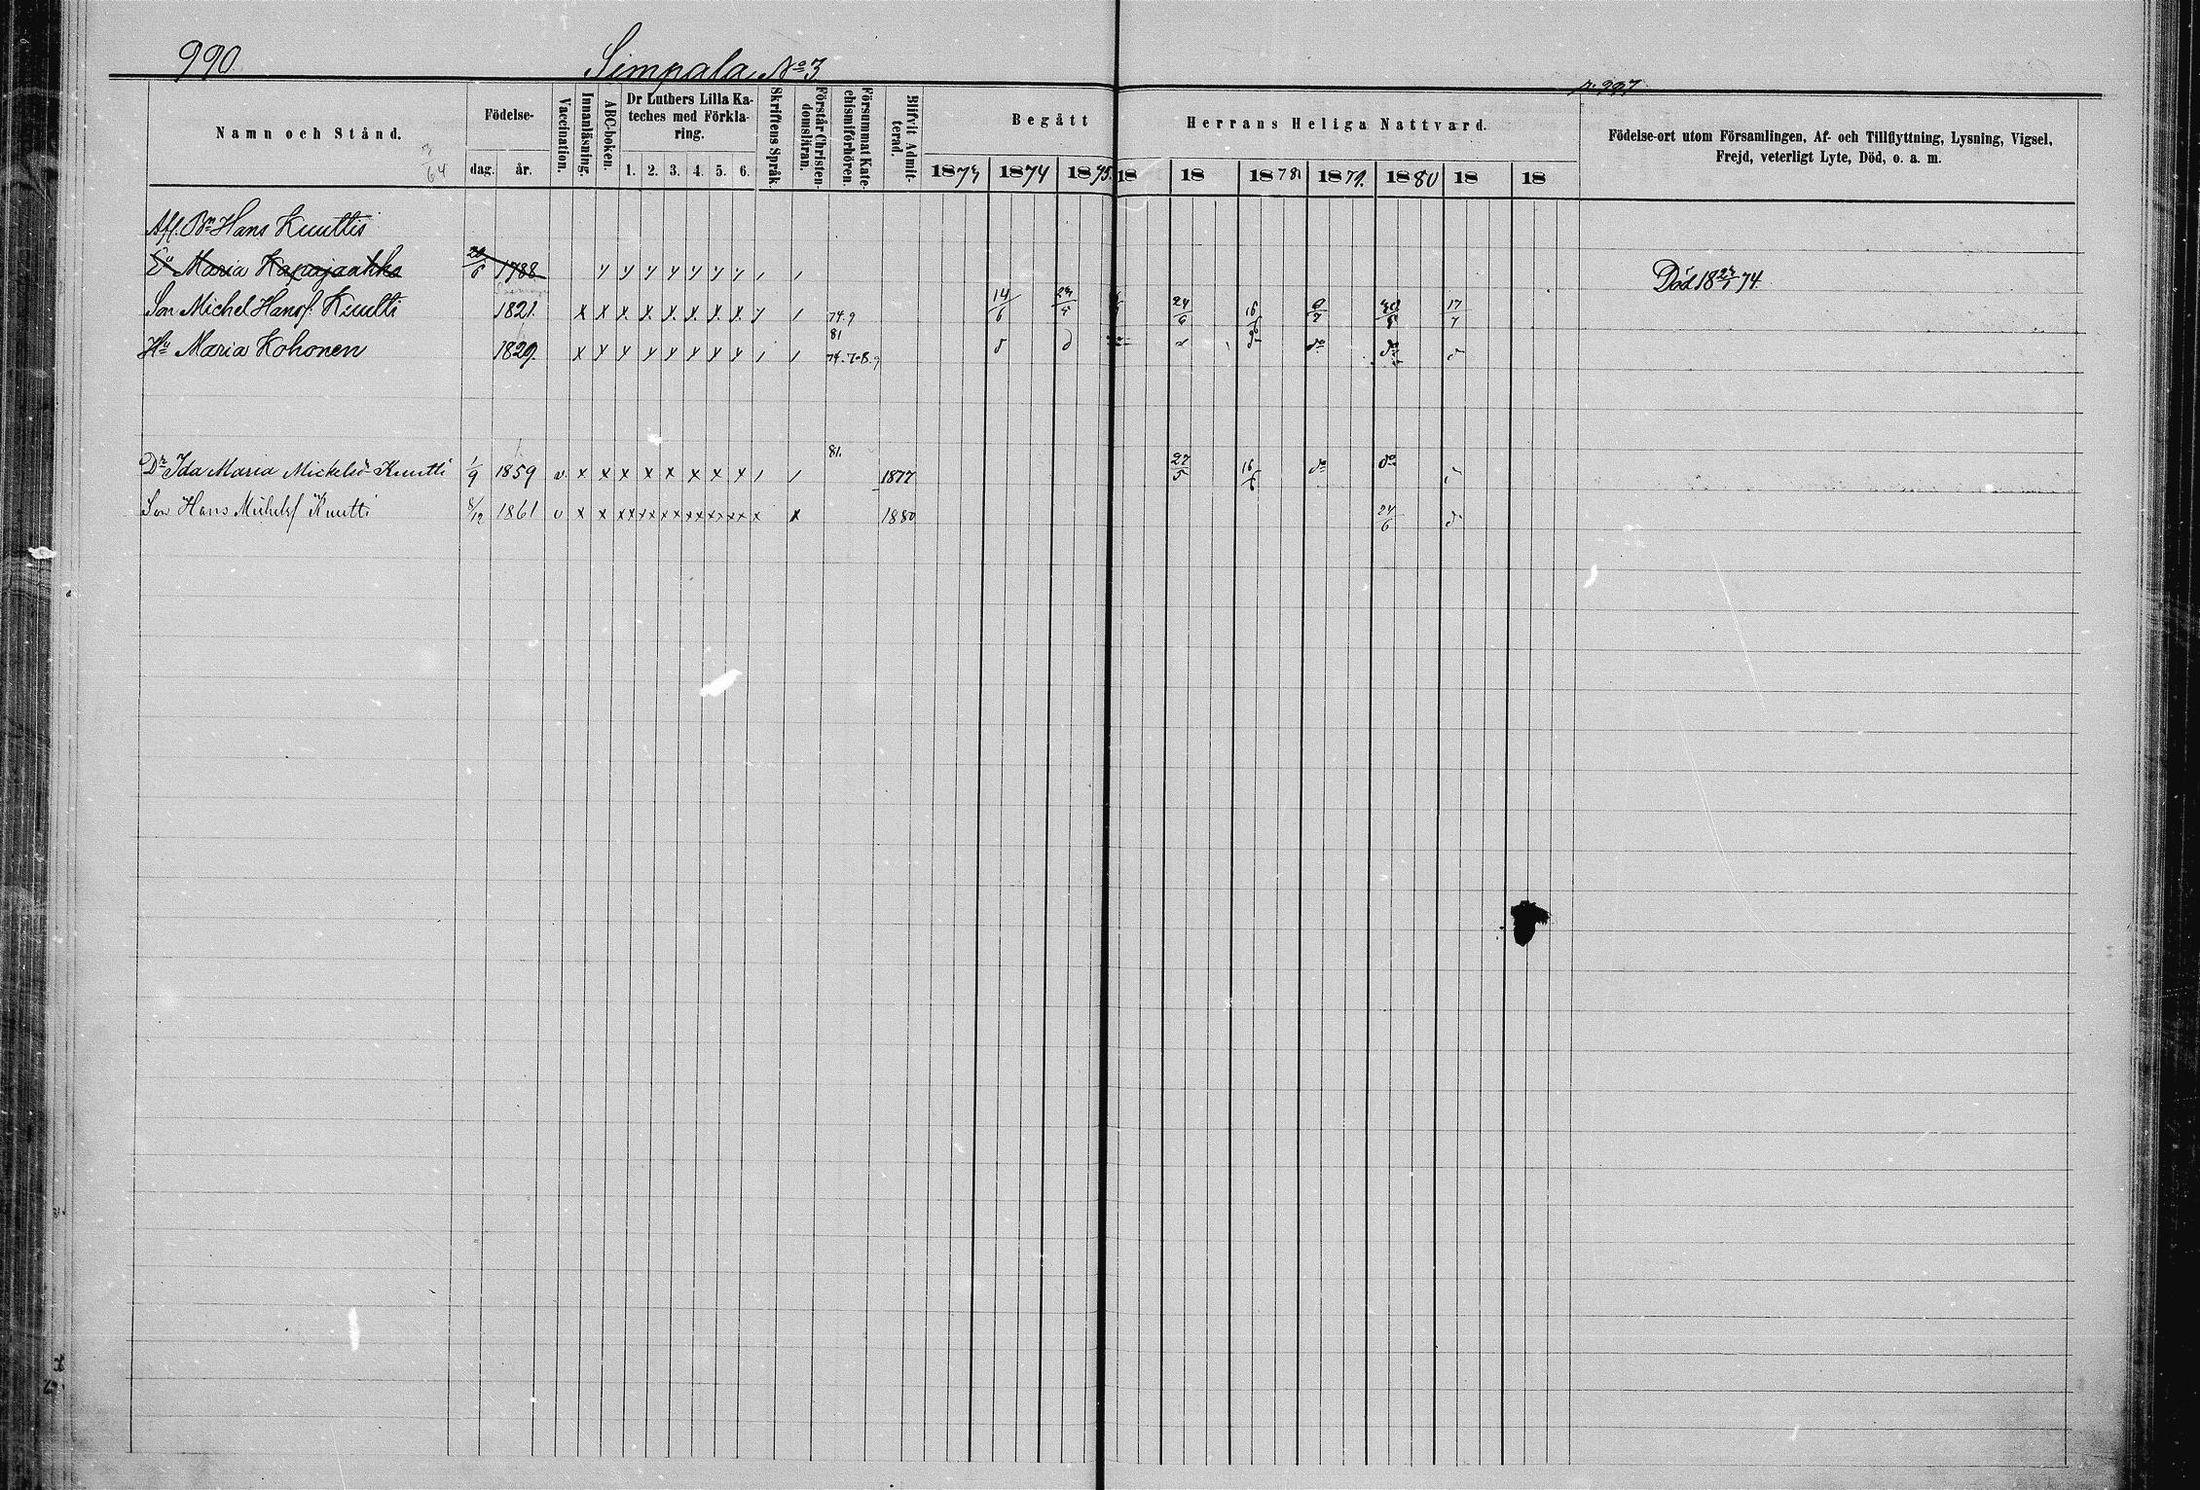 990 Simpala No 3 p. 997.
Namn och Stånd. Födelse- dag. år. Vaccination. Innanläsning. ABC-boken. Dr Luthers Lilla Ka-teches med Förkla-ring. 1. 2. 3. 4. 5. 6. Skriftens Språk. Förstår Christen-domsläran. Försummat Kate-chismiförhören. Blifvit Admit-terad. Begått Herrans Heliga Nattvard. 1873 1874 1875. 18 18 1878 1879. 1880 18 18 Födelse-ort utom Församlingen, Af- och Tillflyttning, Lysning, Vigsel, Frejd, veterligt Lyte, Död, o. a. m.
3/64
Afl. Bn Hans Knuttis
Ea Maria 1788 Död 18 74.
Son Michel Hansf. Knutti 1821. x x x x x x x x 74.9 14/6 24/6 16/6 17/7
Hu Maria Kohonen 1829. 81 do do
Dr Ida Maria Mickelsdr Knutti 1/9 1859 v. x x x x x x x x / / 81. 1877 27/5 16/6 do do
Son Hans Michelsf Knutti 8/12 1861 v x x xx xx xx xx xx xx x x 1880 24/6